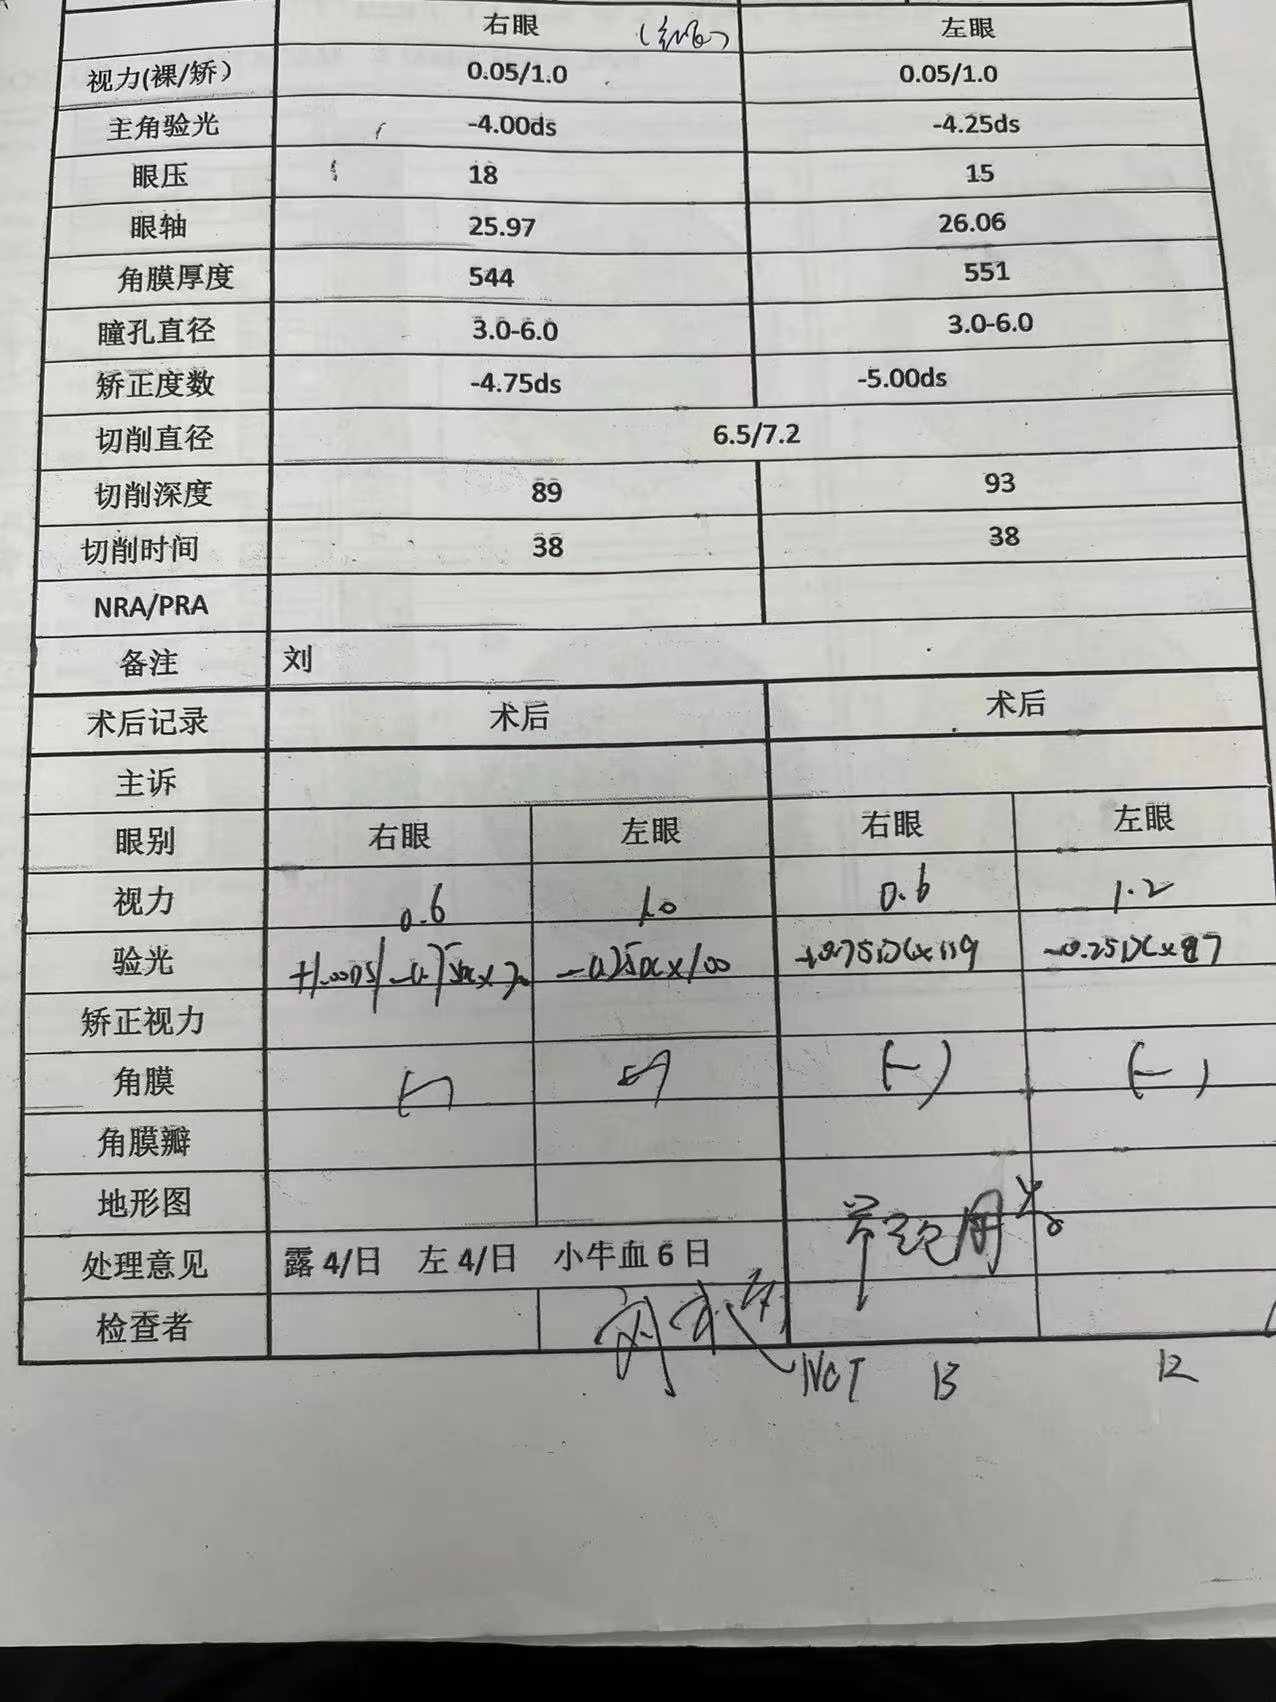 右眼 左眼
视力(裸/矫) 0.05/1.0 0.05/1.0
主角验光 -4.00ds -4.25ds
眼压 18 15
眼轴 25.97 26.06
角膜厚度 544 551
瞳孔直径 3.0-6.0 3.0-6.0
矫正度数 -4.75ds -5.00ds
切削直径 6.5/7.2
切削深度 89 93
切削时间 38 38
NRA/PRA
备注 刘
术后记录 术后 术后
主诉
眼别 右眼 左眼 右眼 左眼
视力 0.6 1.0 0.6 1.2
验光 +1.00DS/-0.75DC× -0.25DC×100 0.75DC×119 -0.25DC×87
矫正视力
角膜 (-) (-) (-) (-)
角膜瓣
地形图
处理意见 露4/日 左4/日 小牛血6日
检查者
NCT 13 12